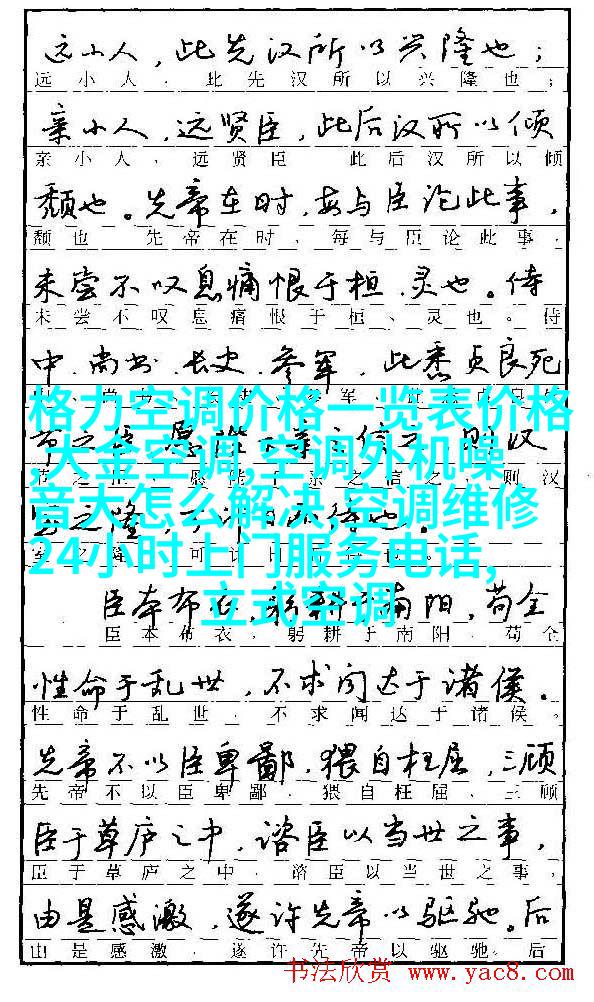 远小人，此先汉所以兴隆也；
远小人，此先汉所以兴隆也；
亲小人，远贤臣，此后汉所以倾
亲小人，远贤臣 此后汉所以倾
颓也。先帝在时，每与臣论此事，
颓也 先帝在时，每与臣论此事，
未尝不叹息痛恨于桓、灵也。侍
未尝不叹息痛恨于桓、灵也。侍
中、尚书、长史、参军，此悉贞良死
格力空调价格一览表价格
,大金空调,空调外机噪
音大怎么解决,空调维修
24小时上门服务电话,
立式空调
臣本布衣，躬耕于南阳，苟全
臣本布衣，躬耕于南阳，苟全
性命于乱世，不求闻达于诸侯。
性命于乱世，不求闻达于诸侯。
先帝不以臣卑鄙，猥自枉屈，三顾
先帝不以臣卑鄙，猥自枉屈，三顾
臣于草庐之中，谘臣以当世之事，
臣于草庐之中，谘臣以当世之事，
由是感激，遂许先帝以驱驰。后
由是感激，遂许先帝以驱驰。后
书法欣赏 www.yac8.com